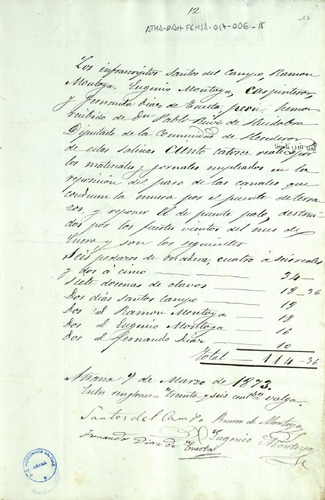 12
ATHA-DAH-FCHSA-017-006-15
17
Los infrascriptos Santos del Campo, Ramon
Montoya, Eugenio Montoya, carpinteros
y Fernando Diaz de Tuesta peon, hemos
recibido de Dn Pablo Ruiz de Huidobro
Diputado de la Comunidad de Herederos
de estas salinas ciento catorce reales por
los materiales y jornales empleados en la
reposicion del paso de las canales que
conducen la muera por el puente de
y reponer el de puente palo,
dos por los fuertes vientos del mes de
Enero y son los siguientes
Seis pedazos de madera, cuatro á seis reales
y dos á cinco 34
Siete docenas de clavos 18 - 36
Dos dias Santos Campo 18
Dos id Ramon Montoya 18
Dos id Eugenio Montoya 16
Dos id Fernando Diaz 10
Total 114 - 36
Añana 7 de Marzo de 1873.
Entre renglones = treinta y seis cents valga.
Santos del Campo Ramon de Montoya
Fernando Diaz de Tuesta Eugenio Montoya